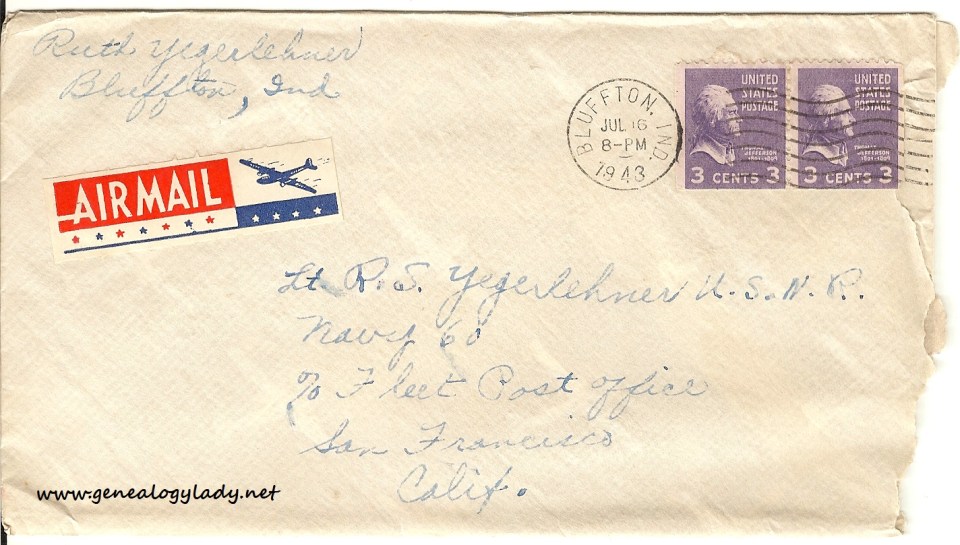 Ruth Yegerlehner
Bluffton, Ind
AIR MAIL
BLUFFTON, IND.
JUL 16
8-PM
1943
UNITED STATES POSTAGE
THOMAS JEFFERSON
1801-1809
3 CENTS 3
UNITED STATES POSTAGE
THOMAS JEFFERSON
1801-1809
3 CENTS 3
Lt. R. S. Yegerlehner U.S.N.R.
Navy 60
c/o Fleet Post Office
San Francisco
Calif.
www.genealogylady.net